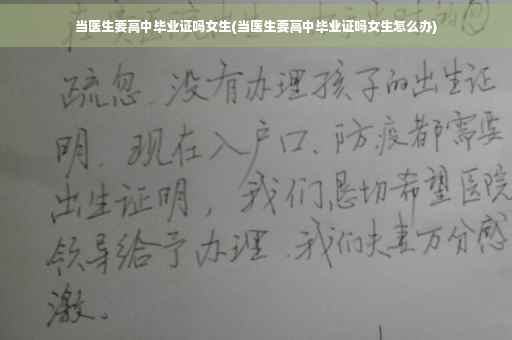 当医生要高中毕业证吗女生(当医生要高中毕业证吗女生怎么办)
疏忽、没有办理孩子的出生证
明、现在入户口、防疫都需要
出生证明，我们恳切希望医院
领导给予办理、我们夫妻万分感
激。